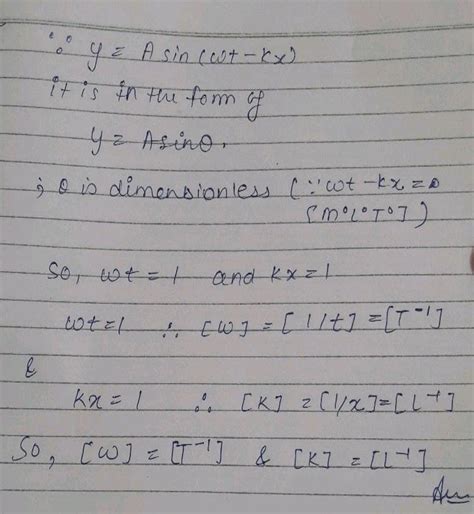 ∵ y = A sin (ωt - kx)
it is in the form of
y = A sinθ.
; θ is dimensionless (∵ ωt - kx = θ
[M⁰L⁰T⁰])
So, ωt = 1 and kx = 1
ωt = 1 ∴ [ω] = [1/t] = [T⁻¹]
&
kx = 1 ∴ [K] = [1/x] = [L⁻¹]
So, [ω] = [T⁻¹] & [K] = [L⁻¹]
Ans